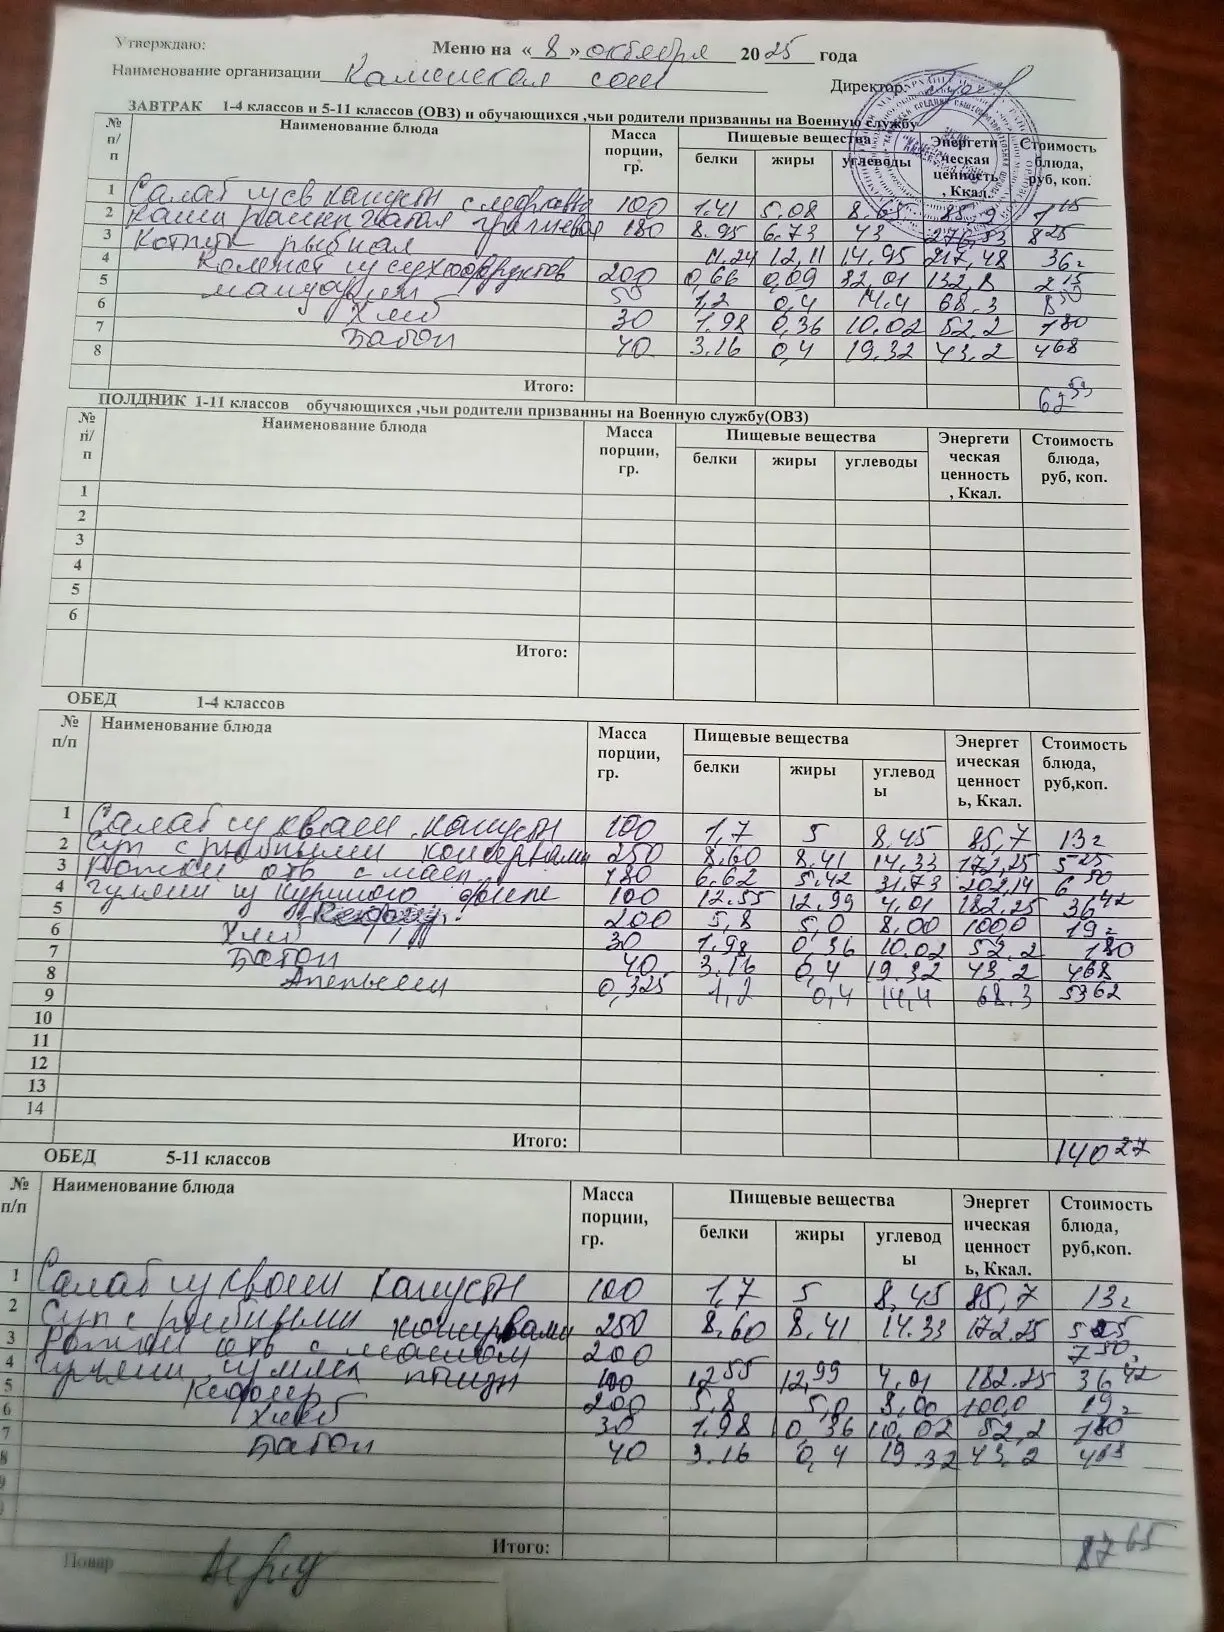 Утверждаю:
Меню на « 8 » октября 2025 года
Наименование организации Каменская сош Директор:
ЗАВТРАК 1-4 классов и 5-11 классов (ОВЗ) и обучающихся ,чьи родители призванны на Военную службу
№ п/п Наименование блюда Масса порции, гр. Пищевые вещества Энергети ческая ценность , Ккал. Стоимость блюда, руб, коп.
белки жиры углеводы
1 Салат из св капусты с морковью 100 1.41 5.08 8.65 85.9
2 Каша рассыпчатая гречневая 180 8.95 6.73 43 276,53 8 25
3 Котлета рыбная 11.24 12,11 14.95 217,48 36=
4 Компот из сухофруктов 200 0,66 0,09 32,01 132,8 2 15
5 мандарин 50 1,2 0,4 14.4 68.3
6 Хлеб 30 1.98 0,36 10.02 52.2 1 80
7 Батон 40 3.16 0,4 19.32 43,2 4 68
8
Итого: 62 53
ПОЛДНИК 1-11 классов обучающихся ,чьи родители призванны на Военную службу(ОВЗ)
№ п/п Наименование блюда Масса порции, гр. Пищевые вещества Энергети ческая ценность , Ккал. Стоимость блюда, руб, коп.
белки жиры углеводы
1
2
3
4
5
6
Итого:
ОБЕД 1-4 классов
№ п/п Наименование блюда Масса порции, гр. Пищевые вещества Энергет ическая ценност ь, Ккал. Стоимость блюда, руб,коп.
белки жиры углевод ы
1 Салат из кваш. капусты 100 1,7 5 8.45 85,7 13=
2 Суп с рыбными консервами 250 8.60 8,41 14.33 172,25 5 25
3 Рожки отв с масл 180 6.62 5.42 31.73 202,14 6 50
4 гуляш из куриного филе 100 12.55 12,99 4,01 182.25 36 42
5 200 5,8 5,0 8,00 100,0 19=
6 Хлеб 30 1.98 0,36 10.02 52.2 1 80
7 Батон 40 3.16 0,4 19.32 43,2 4 68
8 Апельсин 0,325 1,2 0,4 14,4 68.3 53 62
9
10
11
12
13
14
Итого: 140 27
ОБЕД 5-11 классов
№ п/п Наименование блюда Масса порции, гр. Пищевые вещества Энергет ическая ценност ь, Ккал. Стоимость блюда, руб,коп.
белки жиры углевод ы
1 Салат из кваш капусты 100 1,7 5 8,45 85,7 13=
2 Суп с рыбными консервами 250 8.60 8,41 14.33 172.25 5 25
3 Рожки отв с маслом 200 7 50
4 Гуляш из мяса птицы 100 12 55 12,99 4,01 182.25 36 42
5 Кефир 200 5,8 5,0 8,00 100,0 19=
6 Хлеб 30 1.98 0,36 10,02 52,2 1 80
7 Батон 40 3.16 0,4 19.32 43,2 4 68
8
Итого: 87 65
Повар